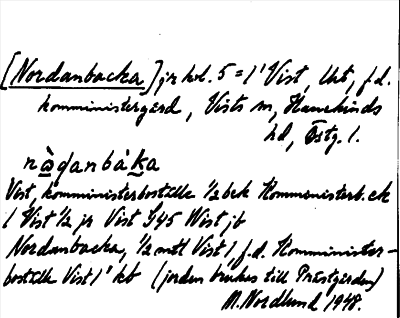 [Nordanbacka] jr kol. 5 = 1' Vist, lht, f.d.
komministergård, Vists sn, Hanekinds
hd, Östg. l.
nọ̀ḍanbàka
Vist, komministerboställe 1/2 bek Kommonisterb. ek
1 Vist 1/2 jr Vist G45 Wist, jb
Nordanbacka, 1/2 mtl Vist 1, f.d. Komminister-
boställe Vist 1' kb (jorden brukas till Prästgården)
M. Nordlund 1948.